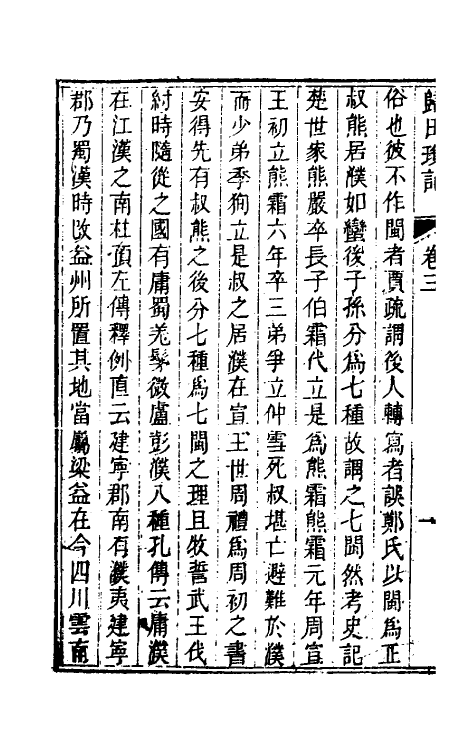 歸田瑣記　卷三　一
俗也彼不作閩者賈疏謂後人轉寫者誤鄭氏以閩爲正
叔熊居濮如蠻後子孫分爲七種故謂之七閩然考史記
楚世家熊嚴卒長子伯霜代立是爲熊霜熊霜元年周宣
王初立熊霜六年卒三弟爭立仲雪死叔堪亡避難於濮
而少弟季狥立是叔之居濮在宣王世周禮爲周初之書
安得先有叔熊之後分七種爲七閩之理且牧誓武王伐
紂時隨從之國有庸蜀羌髳微盧彭濮八種孔傳云庸濮
在江漢之南杜預左傳釋例直云建寧郡南有濮夷建寧
郡乃蜀漢時改益州所置其地當屬梁益在今四川雲南